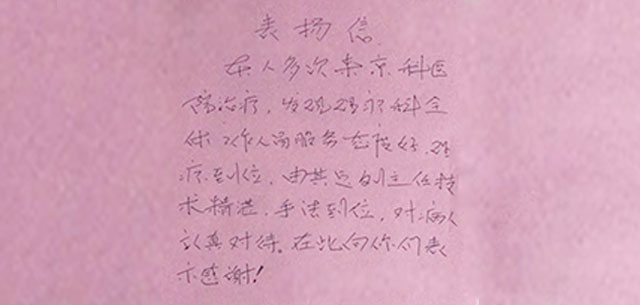 表扬信
本人多次来京科医
院治疗,发现理疗科全
体工作人员服务态度好,理
疗到位,尤其是刘主任技
术精湛,手法到位,对病人
认真对待。在此向你们表
示感谢!